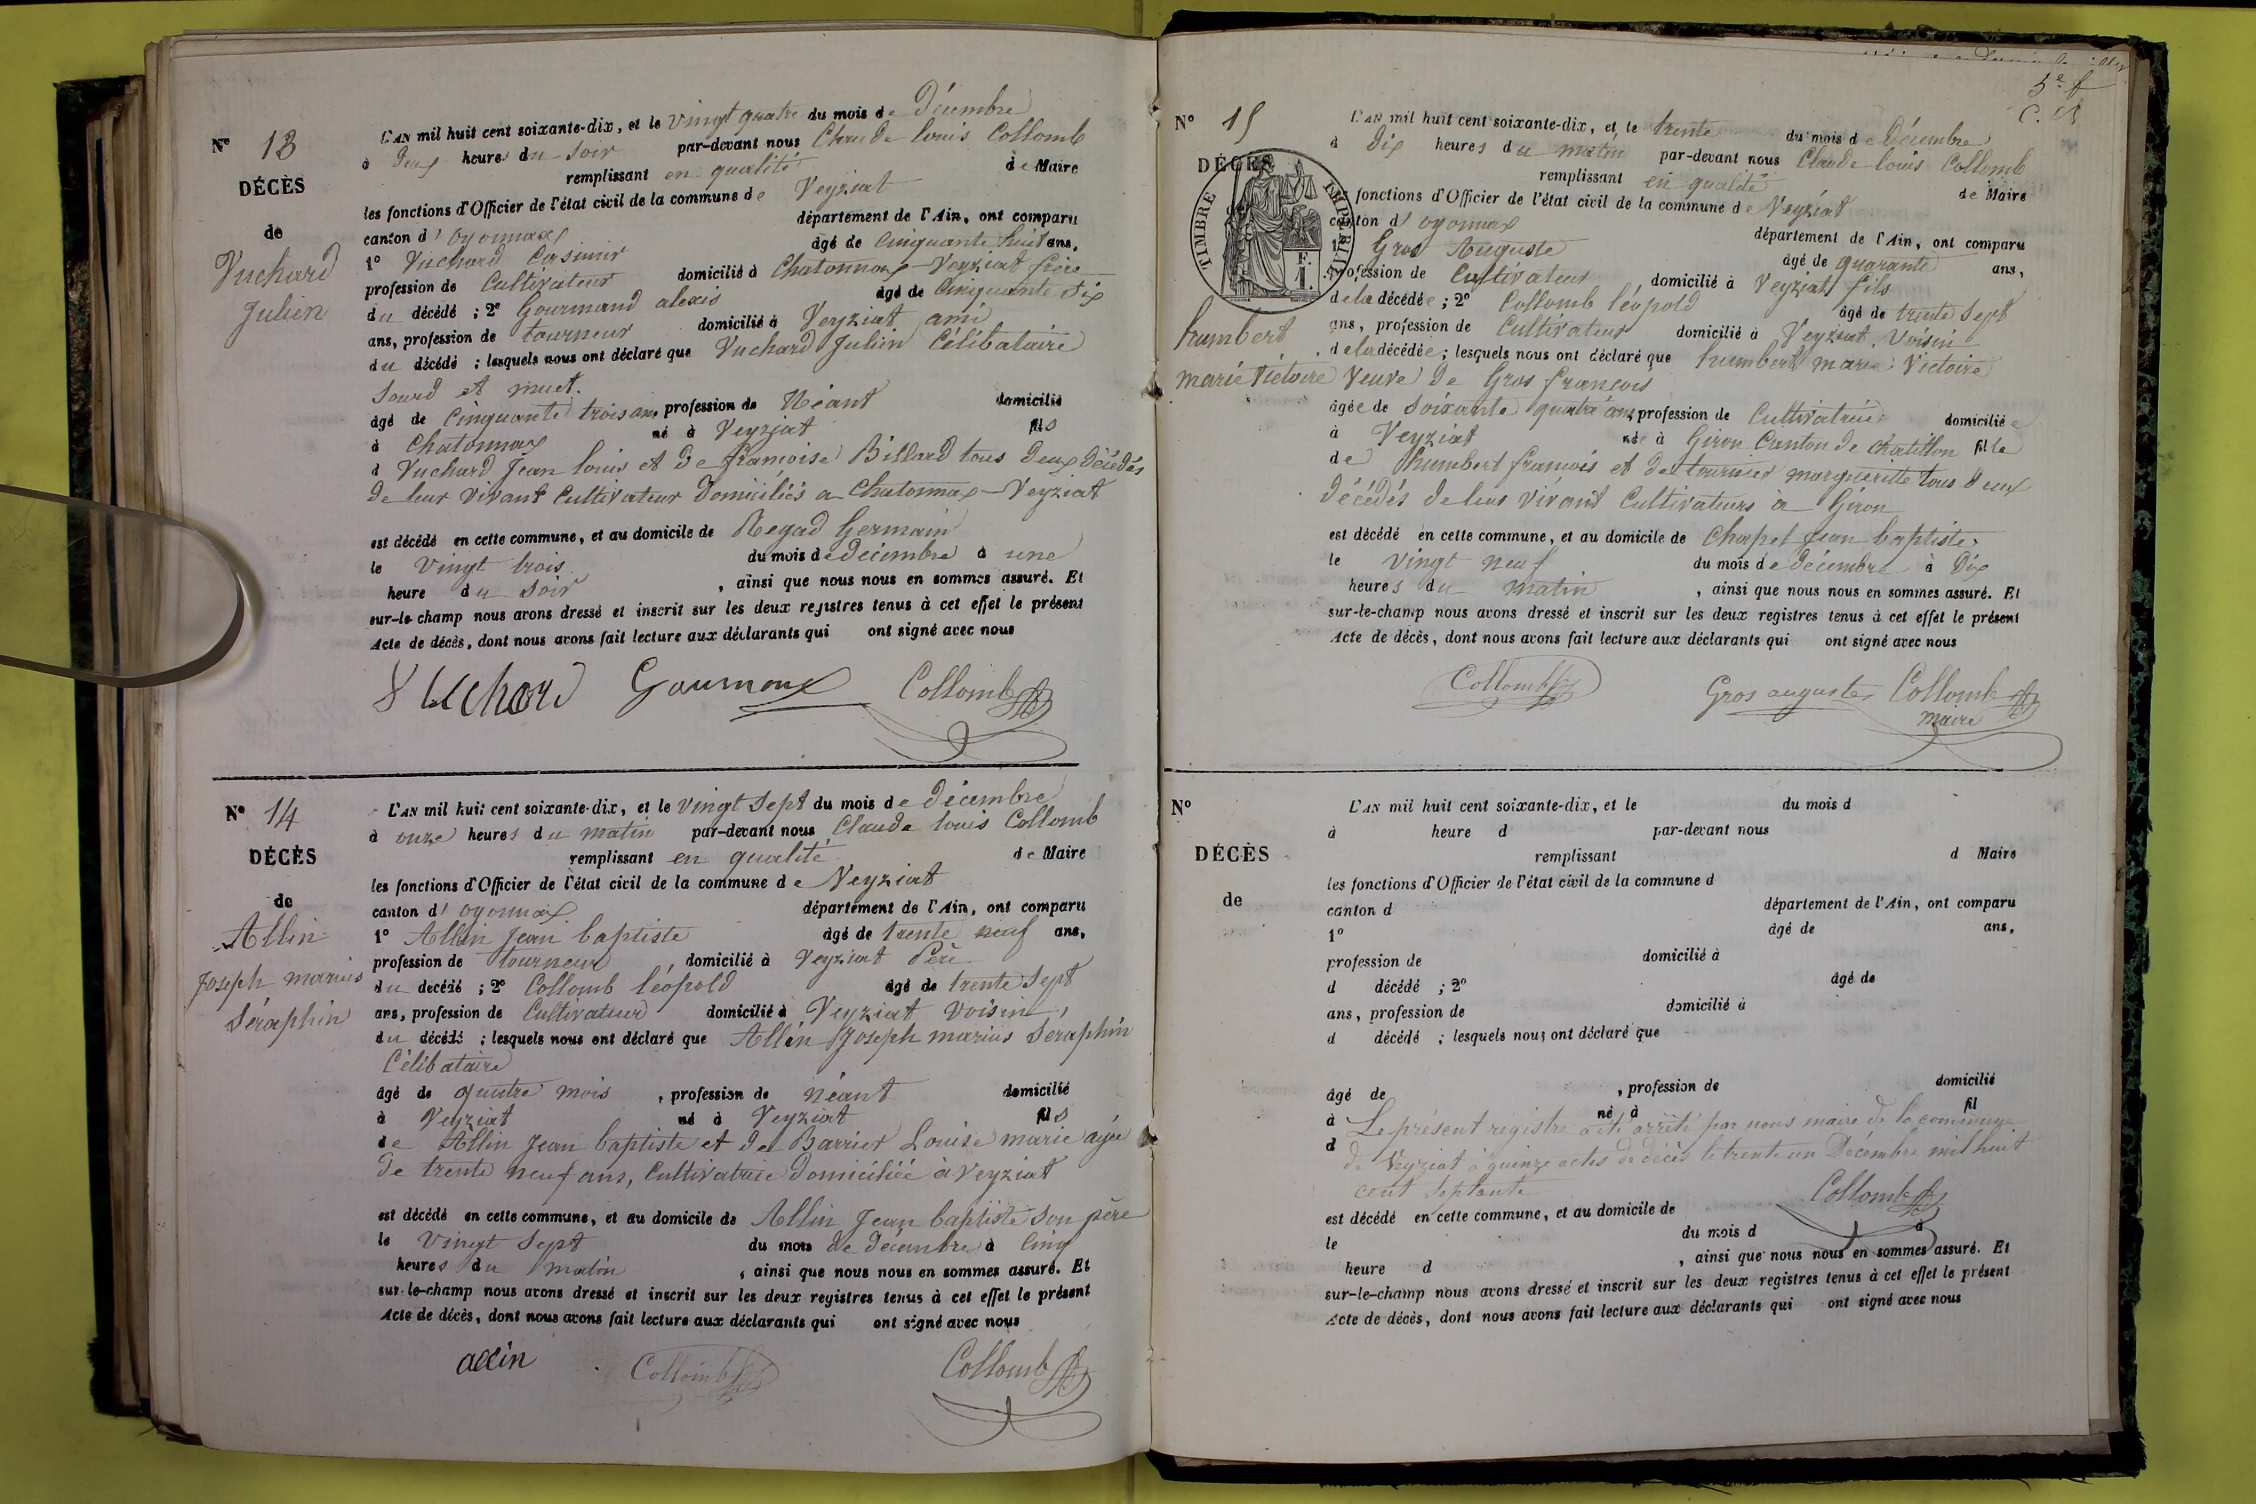 N° 13
DÉCÈS
de
Vuchard
Julien
L'AN mil huit cent soixante-dix, et le vingt quatre du mois de Décembre
à Deux heures du soir par-devant nous Claude louis Collomb
remplissant en qualité de Maire
les fonctions d'Officier de l'état civil de la commune de Veyziat
canton d'oyonnax département de l'Ain, ont comparu
1° Vuchard Casimir âgé de Cinquante huit ans,
profession de Cultivateur domicilié à Chatonnax-Veyziat frère
du décédé ; 2° Gourmand alexis âgé de Cinquante six
ans, profession de tourneur domicilié à Veyziat ami
du décédé ; lesquels nous ont déclaré que Vuchard Julien Célibataire
Sourd et muet.
âgé de Cinquante trois ans, profession de Néant domicilié
à Chatonnax né à Veyziat fils
d Vuchard Jean louis et de françoise Billard tous deux décédés
de leur vivant Cultivateur Domiciliés a Chatonnax-Veyziat
est décédé en cette commune, et au domicile de Regad Germain
le vingt trois du mois de décembre à une
heure du soir , ainsi que nous nous en sommes assuré. Et
sur-le-champ nous avons dressé et inscrit sur les deux registres tenus à cet effet le présent
Acte de décès, dont nous avons fait lecture aux déclarants qui ont signé avec nous
Vuchard Gourmand Collomb
N° 14
DÉCÈS
de
Allin
Joseph marius
Séraphin
L'AN mil huit cent soixante-dix, et le vingt sept du mois de décembre
à onze heures du matin par-devant nous Claude louis Collomb
remplissant en qualité de Maire
les fonctions d'Officier de l'état civil de la commune de Veyziat
canton d'oyonnax département de l'Ain, ont comparu
1° Allin Jean baptiste âgé de trente neuf ans,
profession de tourneur domicilié à Veyziat Père
du décédé ; 2° Collomb léopold âgé de trente sept
ans, profession de Cultivateur domicilié à Veyziat voisin,
du décédé ; lesquels nous ont déclaré que Allin Joseph marius Seraphin
Célibataire
âgé de quatre mois , profession de néant domicilié
à Veyziat né à Veyziat fils
de Allin Jean baptiste et de Barrier Louise marie agée
de trente neuf ans, Cultivatrice Domiciliée à Veyziat
est décédé en cette commune, et au domicile de Allin Jean baptiste son père
le vingt sept du mois de décembre à Cinq
heures du matin , ainsi que nous nous en sommes assuré. Et
sur-le-champ nous avons dressé et inscrit sur les deux registres tenus à cet effet le présent
Acte de décès, dont nous avons fait lecture aux déclarants qui ont signé avec nous
allin Collomb Collomb
5e f
N° 15
DÉCÈS
TIMBRE IMPERIAL
F.
1.
humbert
marie Victoire
L'AN mil huit cent soixante-dix, et le trente du mois de Décembre
à Dix heures du matin par-devant nous Claude louis Collomb
remplissant en qualité de Maire
fonctions d'Officier de l'état civil de la commune de Veyziat
canton d'oyonnax département de l'Ain, ont comparu
Gros Auguste âgé de quarante ans,
profession de Cultivateur domicilié à Veyziat fils
de la décédée ; 2° Collomb léopold âgé de trente sept
ans, profession de Cultivateur domicilié à Veyziat, Voisin
de la décédée ; lesquels nous ont déclaré que humbert marie Victoire
Veuve de Gros françois
âgée de soixante quatre ans, profession de Cultivatrice domiciliée
à Veyziat née à Giron Canton de Chatillon fille
de humbert françois et de tournier marguerite tous deux
décédés de leur vivant Cultivateurs à Giron
est décédé en cette commune, et au domicile de Chapel Jean baptiste
le vingt neuf du mois de décembre à Dix
heures du matin , ainsi que nous nous en sommes assuré. Et
sur-le-champ nous avons dressé et inscrit sur les deux registres tenus à cet effet le présent
Acte de décès, dont nous avons fait lecture aux déclarants qui ont signé avec nous
Collomb Gros auguste Collomb
maire
N°
DÉCÈS
de
L'AN mil huit cent soixante-dix, et le du mois d
à heure d par-devant nous
remplissant d Maire
les fonctions d'Officier de l'état civil de la commune d
canton d département de l'Ain, ont comparu
1° âgé de ans,
profession de domicilié à
d décédé ; 2° âgé de
ans, profession de domicilié à
d décédé ; lesquels nous ont déclaré que
âgé de , profession de domicilié
à né à fil
d
Le présent registre a été arrêté par nous maire de la commune
de Veyziat à quinze actes de décès le trente un Décembre mil huit
cent septante
Collomb
est décédé en cette commune, et au domicile de
le du mois d à
heure d , ainsi que nous nous en sommes assuré. Et
sur-le-champ nous avons dressé et inscrit sur les deux registres tenus à cet effet le présent
Acte de décès, dont nous avons fait lecture aux déclarants qui ont signé avec nous